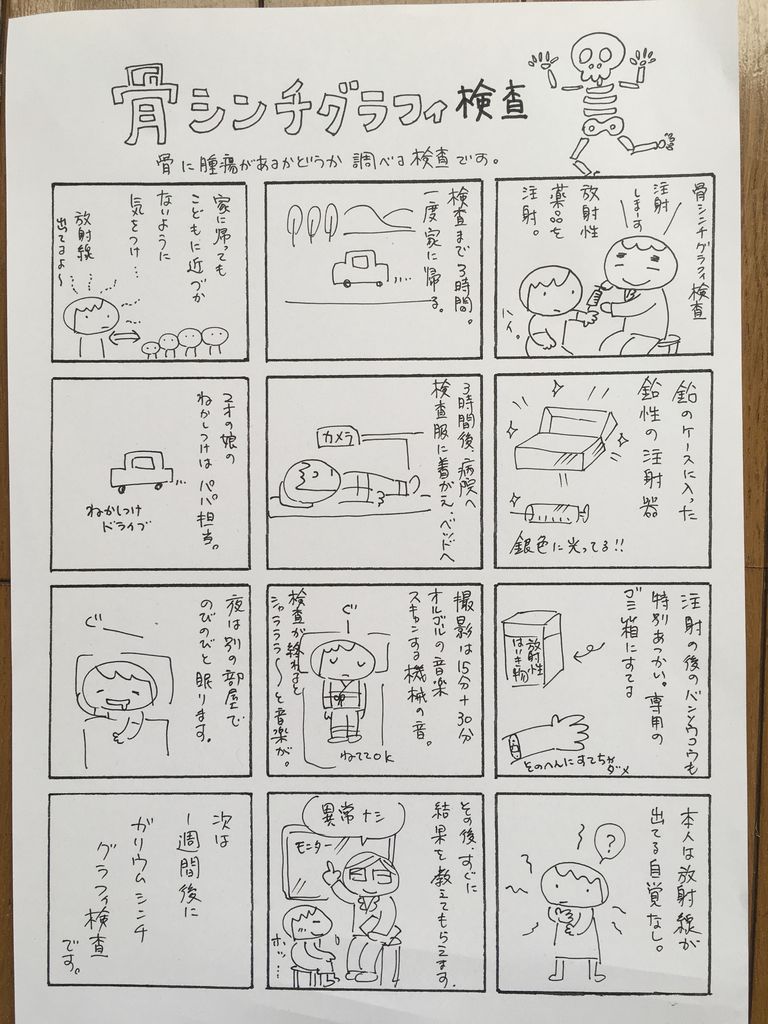 骨シンチグラフィ検査
骨に腫瘍があるかどうか調べる検査です。
骨シンチグラフィ検査
注射
しまーす
放射性
薬品を
注射。
ハイ。
鉛のケースに入った
鉛性の注射器
銀色に光ってる!!
注射の後のバンソウコウも
特別あつかい。専用の
ゴミ箱にすてる
放射性
はいき物
そのへんにすてちゃ
ダメ
本人は放射線が
出てる自覚なし。
?
検査まで3時間。
一度家に帰る。
3時間後、病院へ
検査服に着がえ、ベッドへ
カメラ
撮影は15分+30分
オルゴールの音楽
スキャンする機械の音。
ぐー
検査が終わると
シャラララ〜ンと音楽が。
ねててOK
その後、すぐに
結果を教えてもらえます。
異常ナシ
モニター
ホッ…
家に帰っても
こどもに近づか
ないように
気をつけ…
放射線
出てるよ〜
2才の娘の
ねかしつけは パパ担当。
ねかしつけ
ドライブ
夜は別の部屋で
のびのびと眠ります。
ぐー
次は
1週間後に
ガリウムシンチ
グラフィ検査
です。